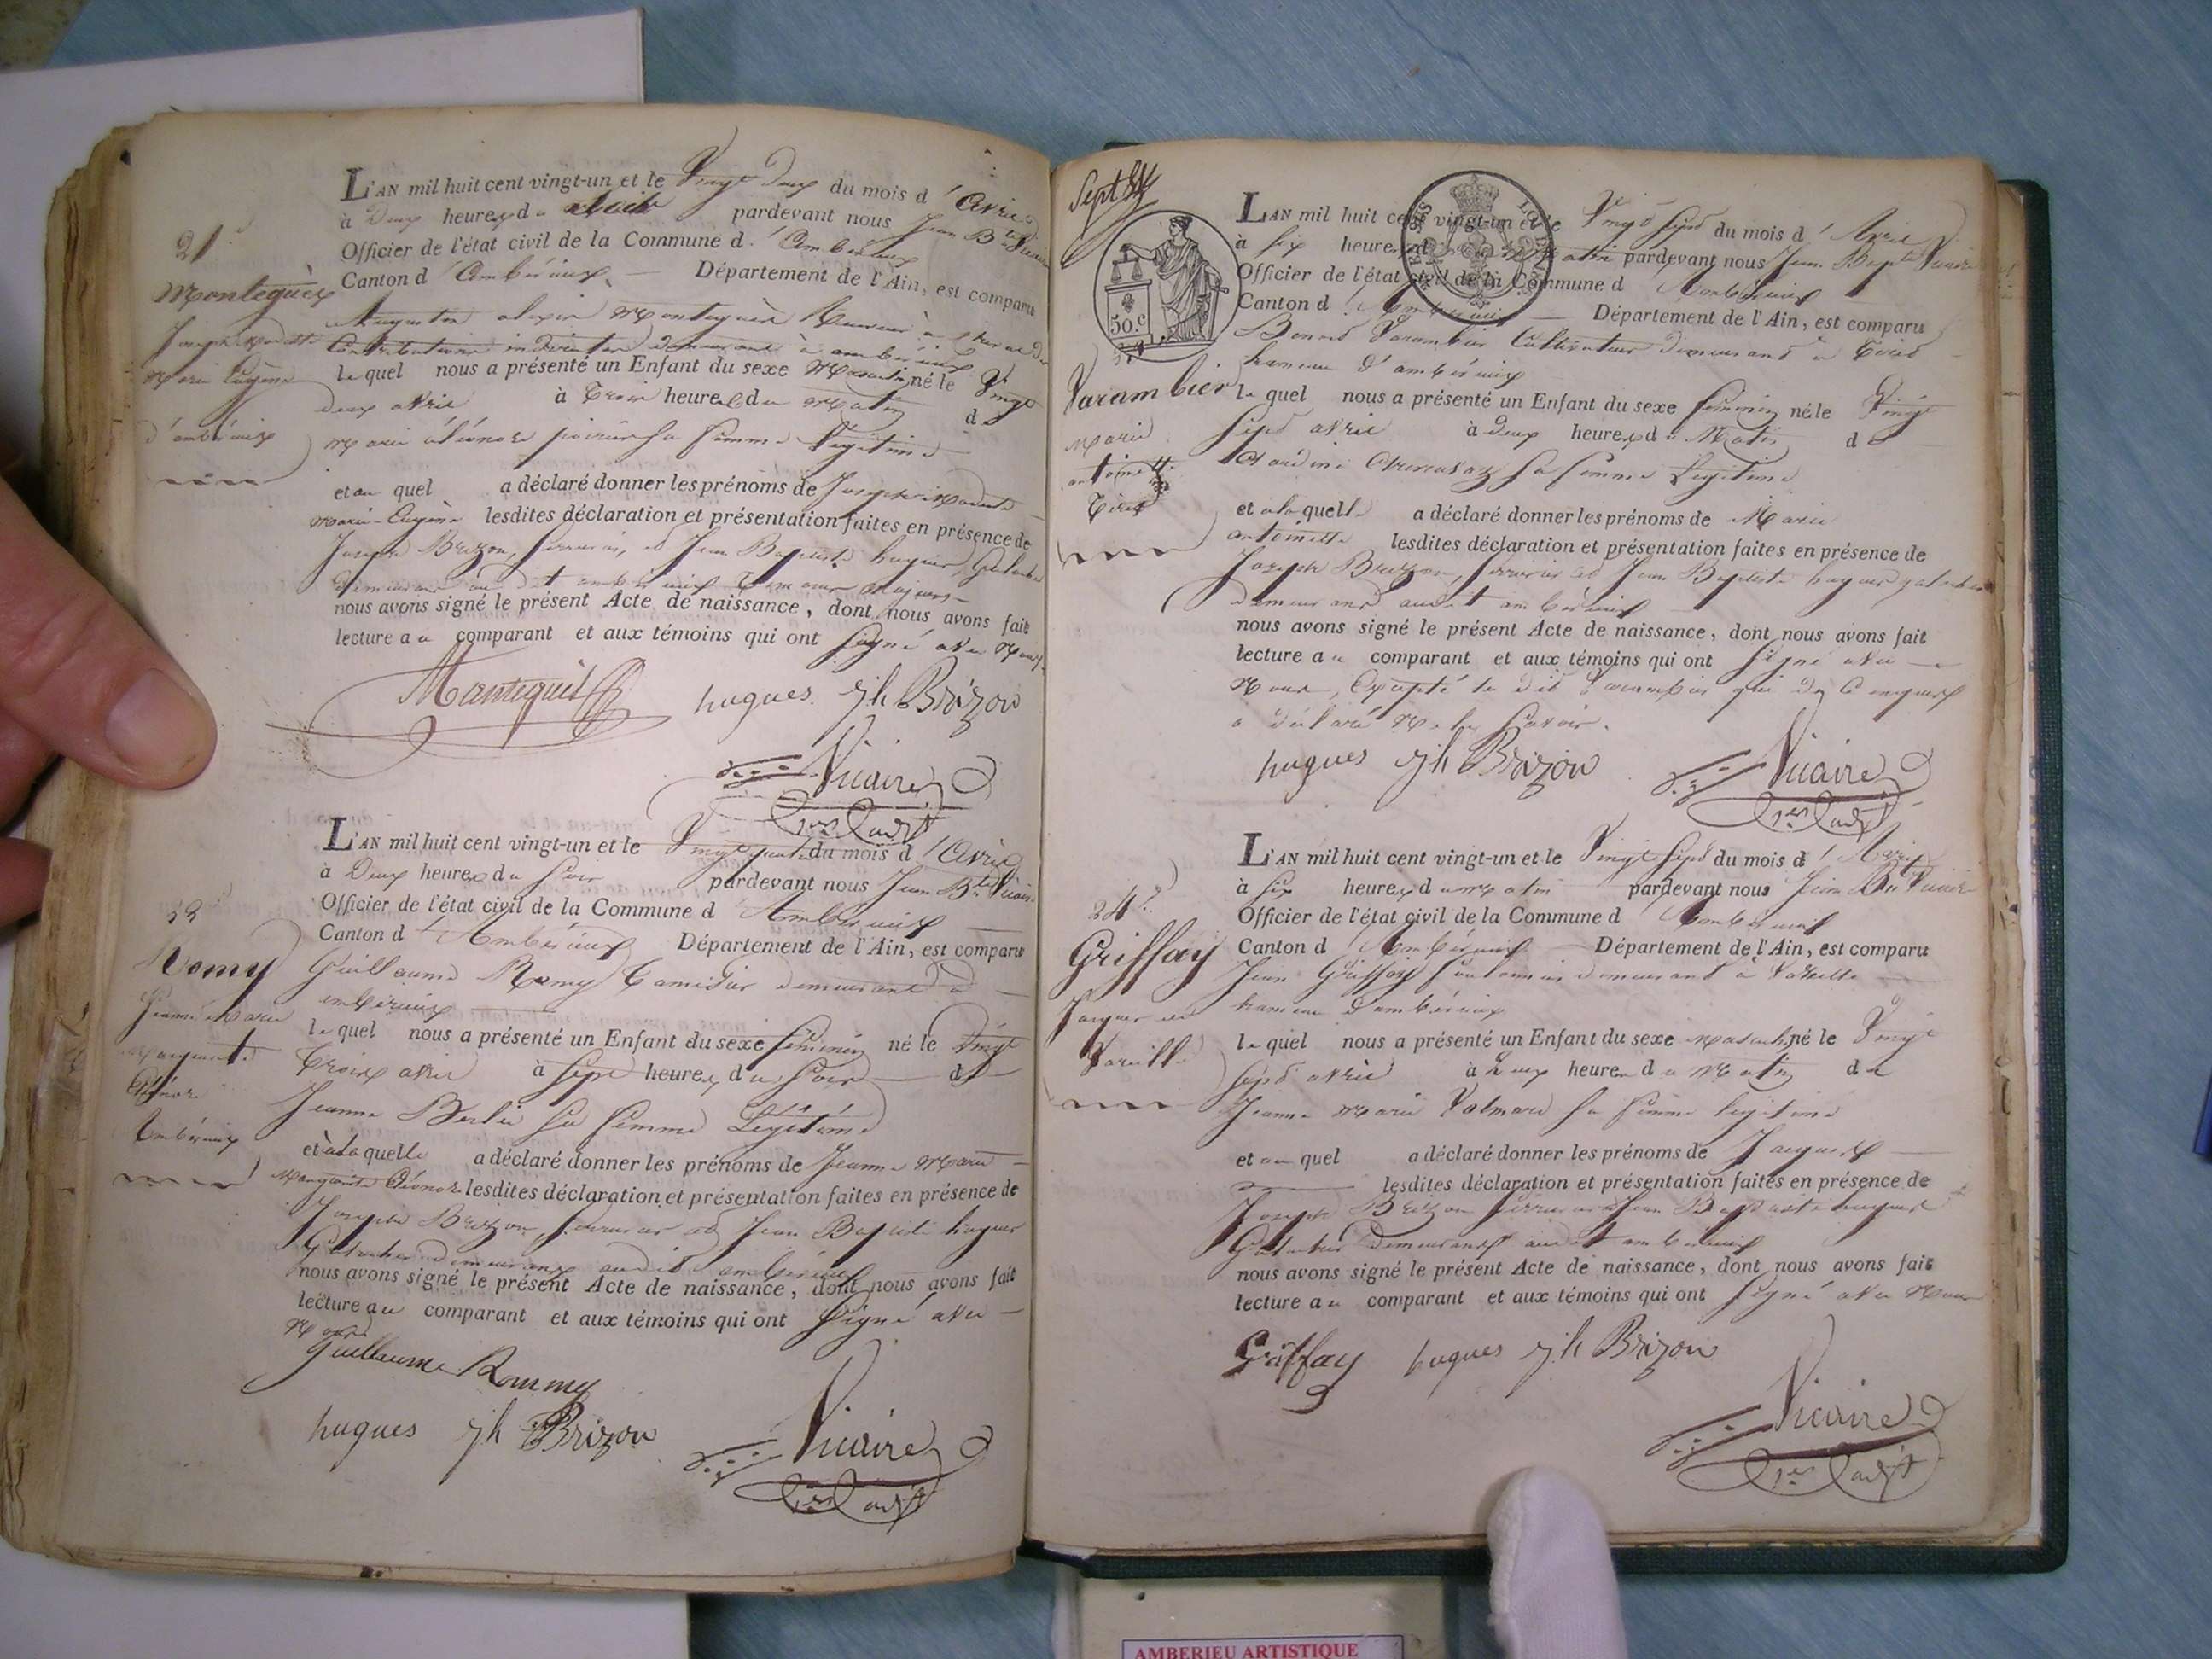 21
L'AN mil huit cent vingt-un et le Vingt Deux du mois d'Avril
à Deux heures du Soir pardevant nous Jean Bte Vicaire
Officier de l'état civil de la Commune d'Ambérieux
Canton d'Ambérieux Département de l'Ain, est comparu
Monteguès
Augustin Monteguès à
Contributions indirectes demeurant à ambérieux
Joseph
Marie Eugène
lequel nous a présenté un Enfant du sexe Masculin né le Vingt
deux avril à Trois heures du Matin de
d'ambérieux
Marie éléonore sa femme Légitime
et au quel a déclaré donner les prénoms de Joseph
Marie-Eugène lesdites déclaration et présentation faites en présence de
Joseph Brizon, serrurier, et Jean Baptiste hugues,
demeurant audit ambérieux Témoins Majeurs
nous avons signé le présent Acte de naissance, dont nous avons fait
lecture au comparant et aux témoins qui ont Signé avec Nous
hugues jh Brizon
Vicaire
L'AN mil huit cent vingt-un et le Vingt quatre du mois d'Avril
à Deux heures du Soir pardevant nous Jean Bte Vicaire
Officier de l'état civil de la Commune d'Ambérieux
Canton d'Ambérieux Département de l'Ain, est comparu
Romy
Guillaume Romy demeurant à
ambérieux
Jeanne Marie
lequel nous a présenté un Enfant du sexe féminin né le Vingt
Marguerite
Trois avril à Sept heures du Soir de
Eléonore
Jeanne sa femme Légitime
Ambérieux
et à la quelle a déclaré donner les prénoms de Jeanne Marie
Marguerite Eléonore lesdites déclaration et présentation faites en présence de
Joseph Brizon, serrurier et Jean Baptiste hugues
demeurant audit ambérieux
nous avons signé le présent Acte de naissance, dont nous avons fait
lecture au comparant et aux témoins qui ont Signé avec
Nous
Guillaume Rommy
hugues jh Brizon
Vicaire
Sept
50.c
L'AN mil huit cent vingt-un et le Vingt Sept du mois d'Avril
à Six heures du Matin pardevant nous Jean Bapte Vicaire
Officier de l'état civil de la Commune d'Ambérieux
Canton d'Ambérieux Département de l'Ain, est comparu
Benoit Varambier Cultivateur demeurant à Tiret
hameau d'ambérieux
Varambier
lequel nous a présenté un Enfant du sexe féminin né le Vingt
Marie
Sept avril à Deux heures du Matin de
antoinette
Claudine sa femme Légitime
Tiret
et à la quelle a déclaré donner les prénoms de Marie
antoinette lesdites déclaration et présentation faites en présence de
Joseph Brizon, serrurier et Jean Baptiste hugues
demeurant audit ambérieux
nous avons signé le présent Acte de naissance, dont nous avons fait
lecture au comparant et aux témoins qui ont Signé avec
Nous, Excepté le dit Varambier qui De Ce enquis
a déclaré Ne le Savoir.
hugues jh Brizon
Vicaire
L'AN mil huit cent vingt-un et le Vingt Sept du mois d'Avril
à Six heures du Matin pardevant nous Jean Bte Vicaire
24
Officier de l'état civil de la Commune d'Ambérieux
Griffay
Canton d'Ambérieux Département de l'Ain, est comparu
Jean Griffay demeurant à Vareille
hameau d'ambérieux
Jacques
Vareille
lequel nous a présenté un Enfant du sexe Masculin né le Vingt
Sept avril à Deux heures du Matin de
Jeanne Marie sa femme légitime
et au quel a déclaré donner les prénoms de Jacques
lesdites déclaration et présentation faites en présence de
Joseph Brizon serrurier et Jean Baptiste hugues
demeurant audit ambérieux
nous avons signé le présent Acte de naissance, dont nous avons fait
lecture au comparant et aux témoins qui ont Signé avec Nous
Griffay hugues jh Brizon
Vicaire
AMBERIEU ARTISTIQUE